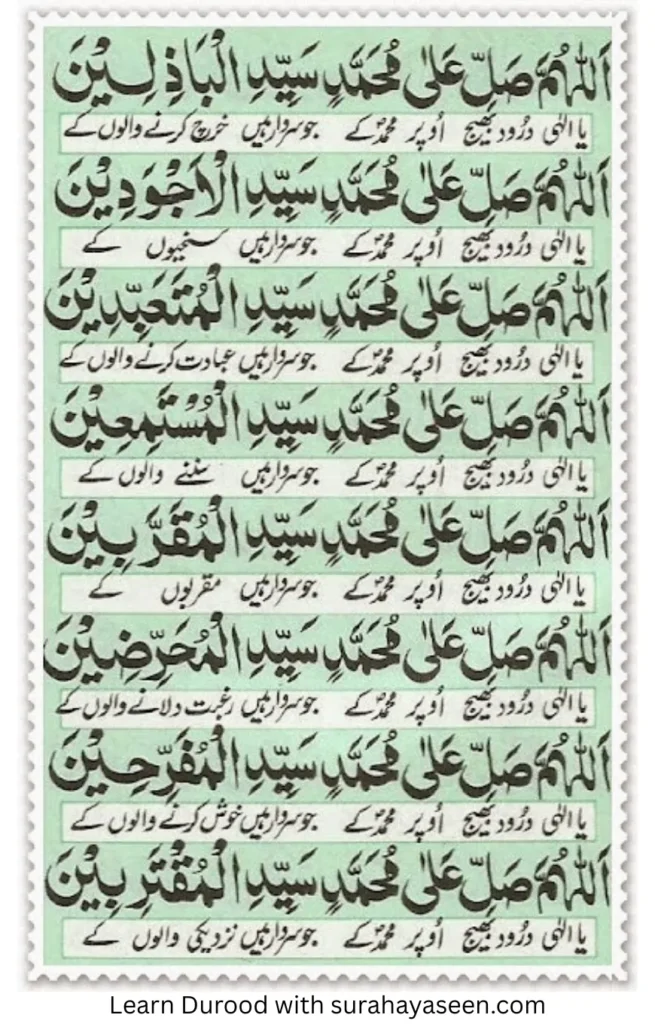 اَللّٰهُمَّ صَلِّ عَلٰى مُحَمَّدٍ سَيِّدِ الْبَاذِلِيْنَ
یا الٰہی درُود بھیج اُوپر محمدؐ کے جو سردار ہیں خرچ کرنے والوں کے
اَللّٰهُمَّ صَلِّ عَلٰى مُحَمَّدٍ سَيِّدِ الْاَجْوَدِيْنَ
یا الٰہی درُود بھیج اُوپر محمدؐ کے جو سردار ہیں سخیوں کے
اَللّٰهُمَّ صَلِّ عَلٰى مُحَمَّدٍ سَيِّدِ الْمُتَعَبِّدِيْنَ
یا الٰہی درُود بھیج اُوپر محمدؐ کے جو سردار ہیں عبادت کرنے والوں کے
اَللّٰهُمَّ صَلِّ عَلٰى مُحَمَّدٍ سَيِّدِ الْمُسْتَمِعِيْنَ
یا الٰہی درُود بھیج اُوپر محمدؐ کے جو سردار ہیں سننے والوں کے
اَللّٰهُمَّ صَلِّ عَلٰى مُحَمَّدٍ سَيِّدِ الْمُقَرَّبِيْنَ
یا الٰہی درُود بھیج اُوپر محمدؐ کے جو سردار ہیں مقربوں کے
اَللّٰهُمَّ صَلِّ عَلٰى مُحَمَّدٍ سَيِّدِ الْمُحَرِّضِيْنَ
یا الٰہی درُود بھیج اُوپر محمدؐ کے جو سردار ہیں رغبت دلانے والوں کے
اَللّٰهُمَّ صَلِّ عَلٰى مُحَمَّدٍ سَيِّدِ الْمُفَرِّحِيْنَ
یا الٰہی درُود بھیج اُوپر محمدؐ کے جو سردار ہیں خوش کرنے والوں کے
اَللّٰهُمَّ صَلِّ عَلٰى مُحَمَّدٍ سَيِّدِ الْمُقْتَرِبِيْنَ
یا الٰہی درُود بھیج اُوپر محمدؐ کے جو سردار ہیں نزدیکی والوں کے
Learn Durood with surahayaseen.com